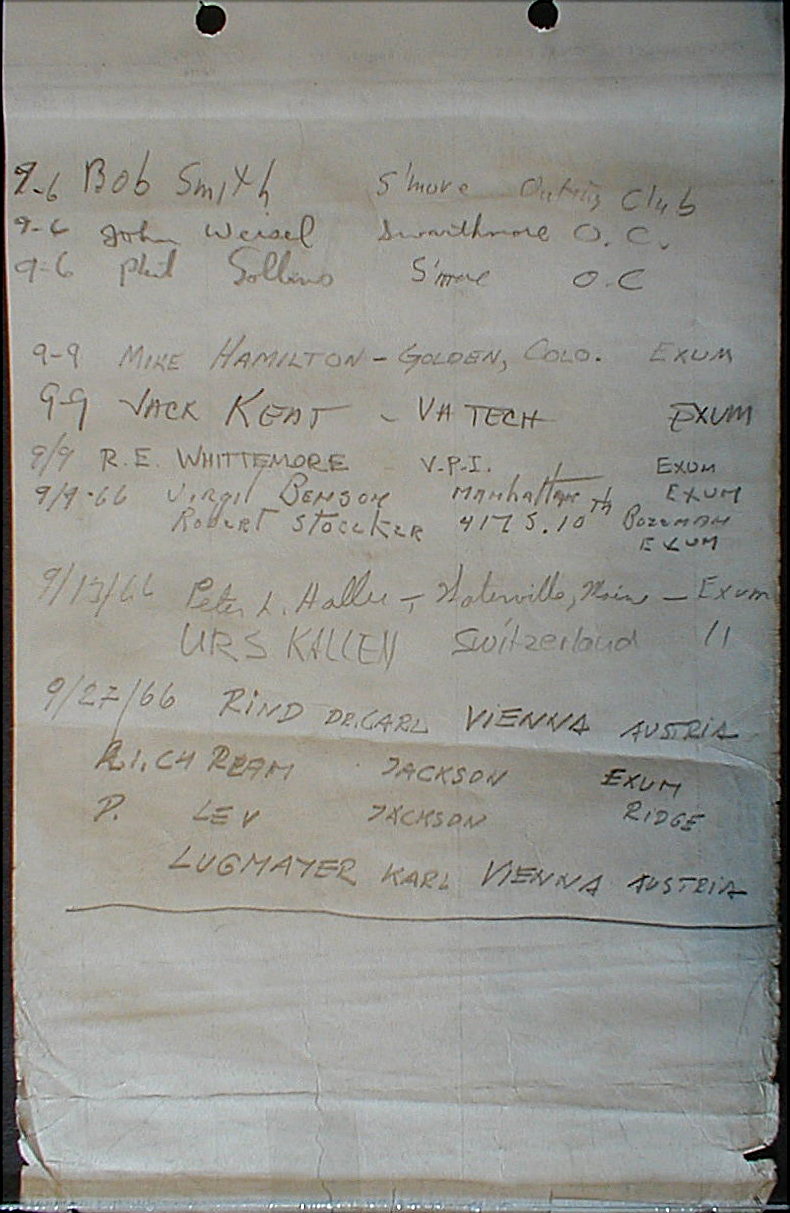 9-6 Bob Smith S'more Outing Club
9-6 John Weisel Swarthmore O.C.
9-6 Phil Sollens S'more O.C
9-9 MIKE HAMILTON - GOLDEN, COLO. EXUM
9-9 JACK KEAT - VA TECH EXUM
9/9 R.E. WHITTEMORE V.P.I. EXUM
9/9-66 Virgil BENSON Manhattan EXUM
Robert Stoecker 417 S. 10TH Bozeman
EXUM
9/13/66 Peter L. Haller - Waterville, Maine - Exum
URS KALLEN Switzerland 11
9/27/66 RIND DR.CARL VIENNA AUSTRIA
RICH REAM JACKSON EXUM
P. LEV JACKSON RIDGE
LUGMAYER KARL VIENNA AUSTRIA